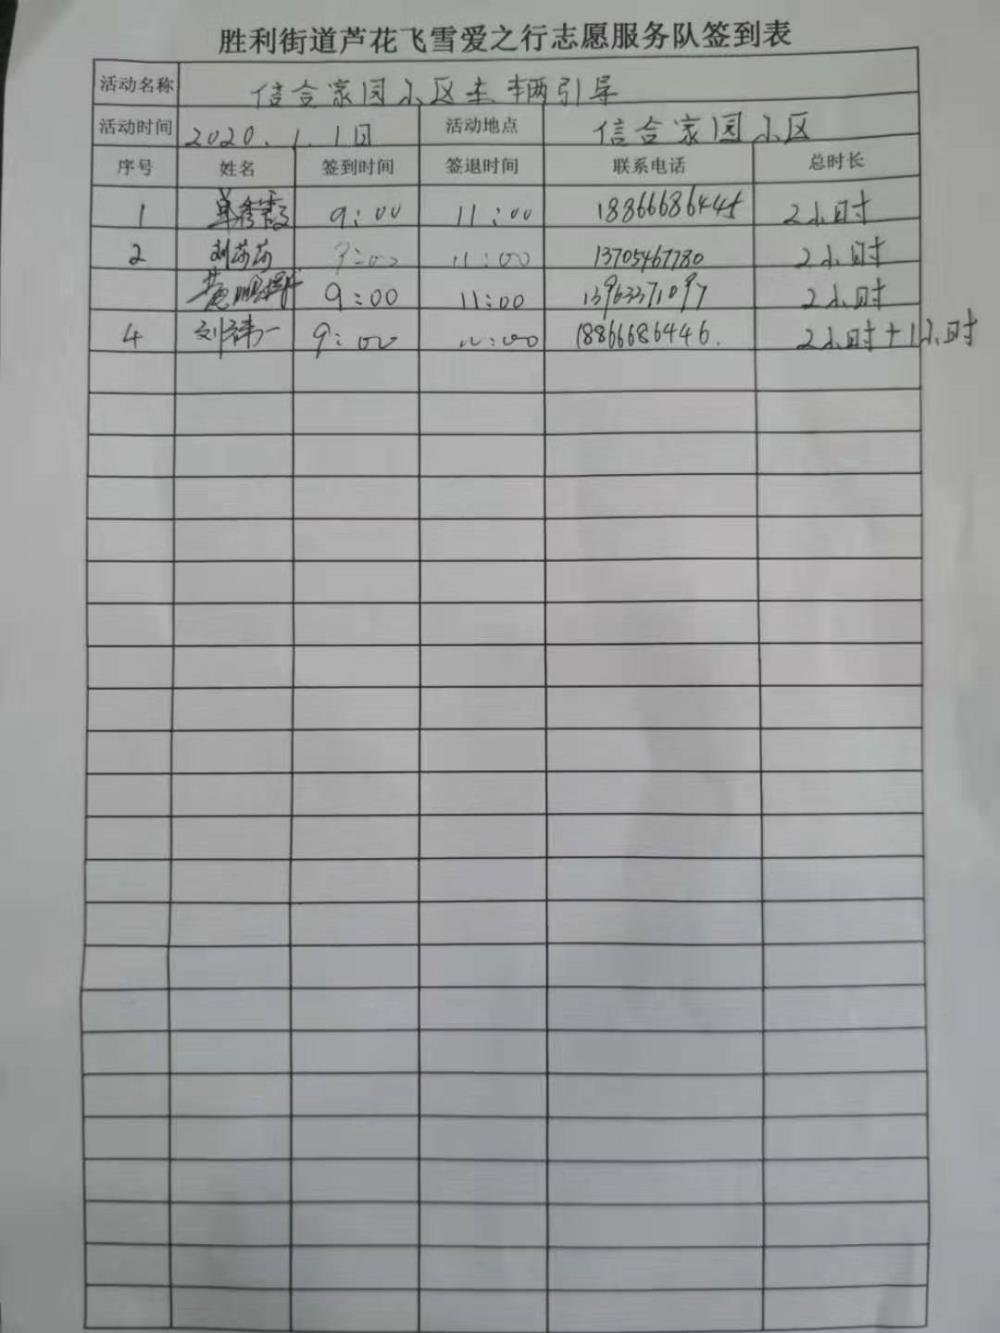 胜利街道芦花飞雪爱之行志愿服务队签到表
活动名称 信合家园小区车辆引导
活动时间 2020.1.1日 活动地点 信合家园小区
序号 姓名 签到时间 签退时间 联系电话 总时长
1 单秀霞 9:00 11:00 18866686445 2小时
2 刘莎莎 9:00 11:00 13705467780 2小时
9:00 11:00 13963371097 2小时
4 刘祎一 9:00 11:00 18866686446. 2小时+1小时